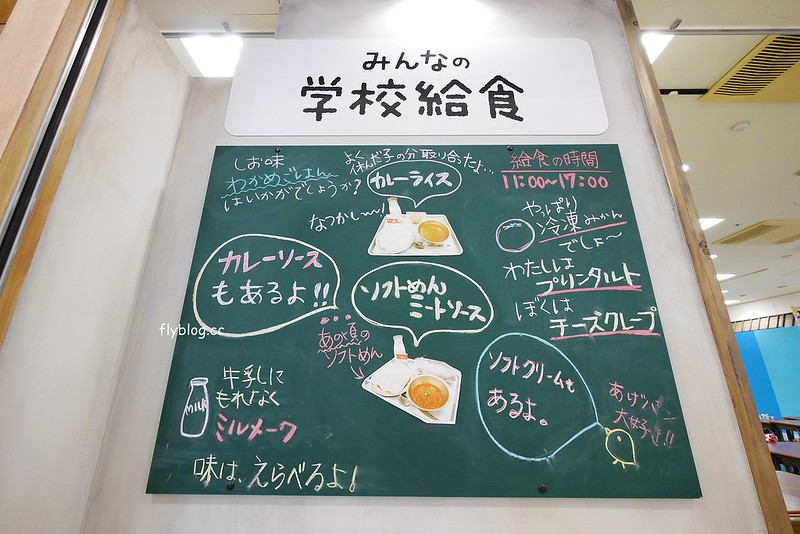 みんなの
学校給食
しお味
わかめごはん
はいかがでしょうか?
よく
休んだ子の分取り合ったよ…
カレーライス
なつかし〜!
給食の時間
11:00〜17:00
やっぱり
冷凍みかん
でしょ〜
わたしは
プリンタルト
ぼくは
チーズクレープ
カレーソース
もあるよ!!
ソフトめん
ミートソース
あの頃の
ソフトめん
flyblog.cc
牛乳に
もれなく
ミルメーク
MILK
味は、えらべるよ!
ソフトクリームも
あるよ。
あげパン
大好き!!